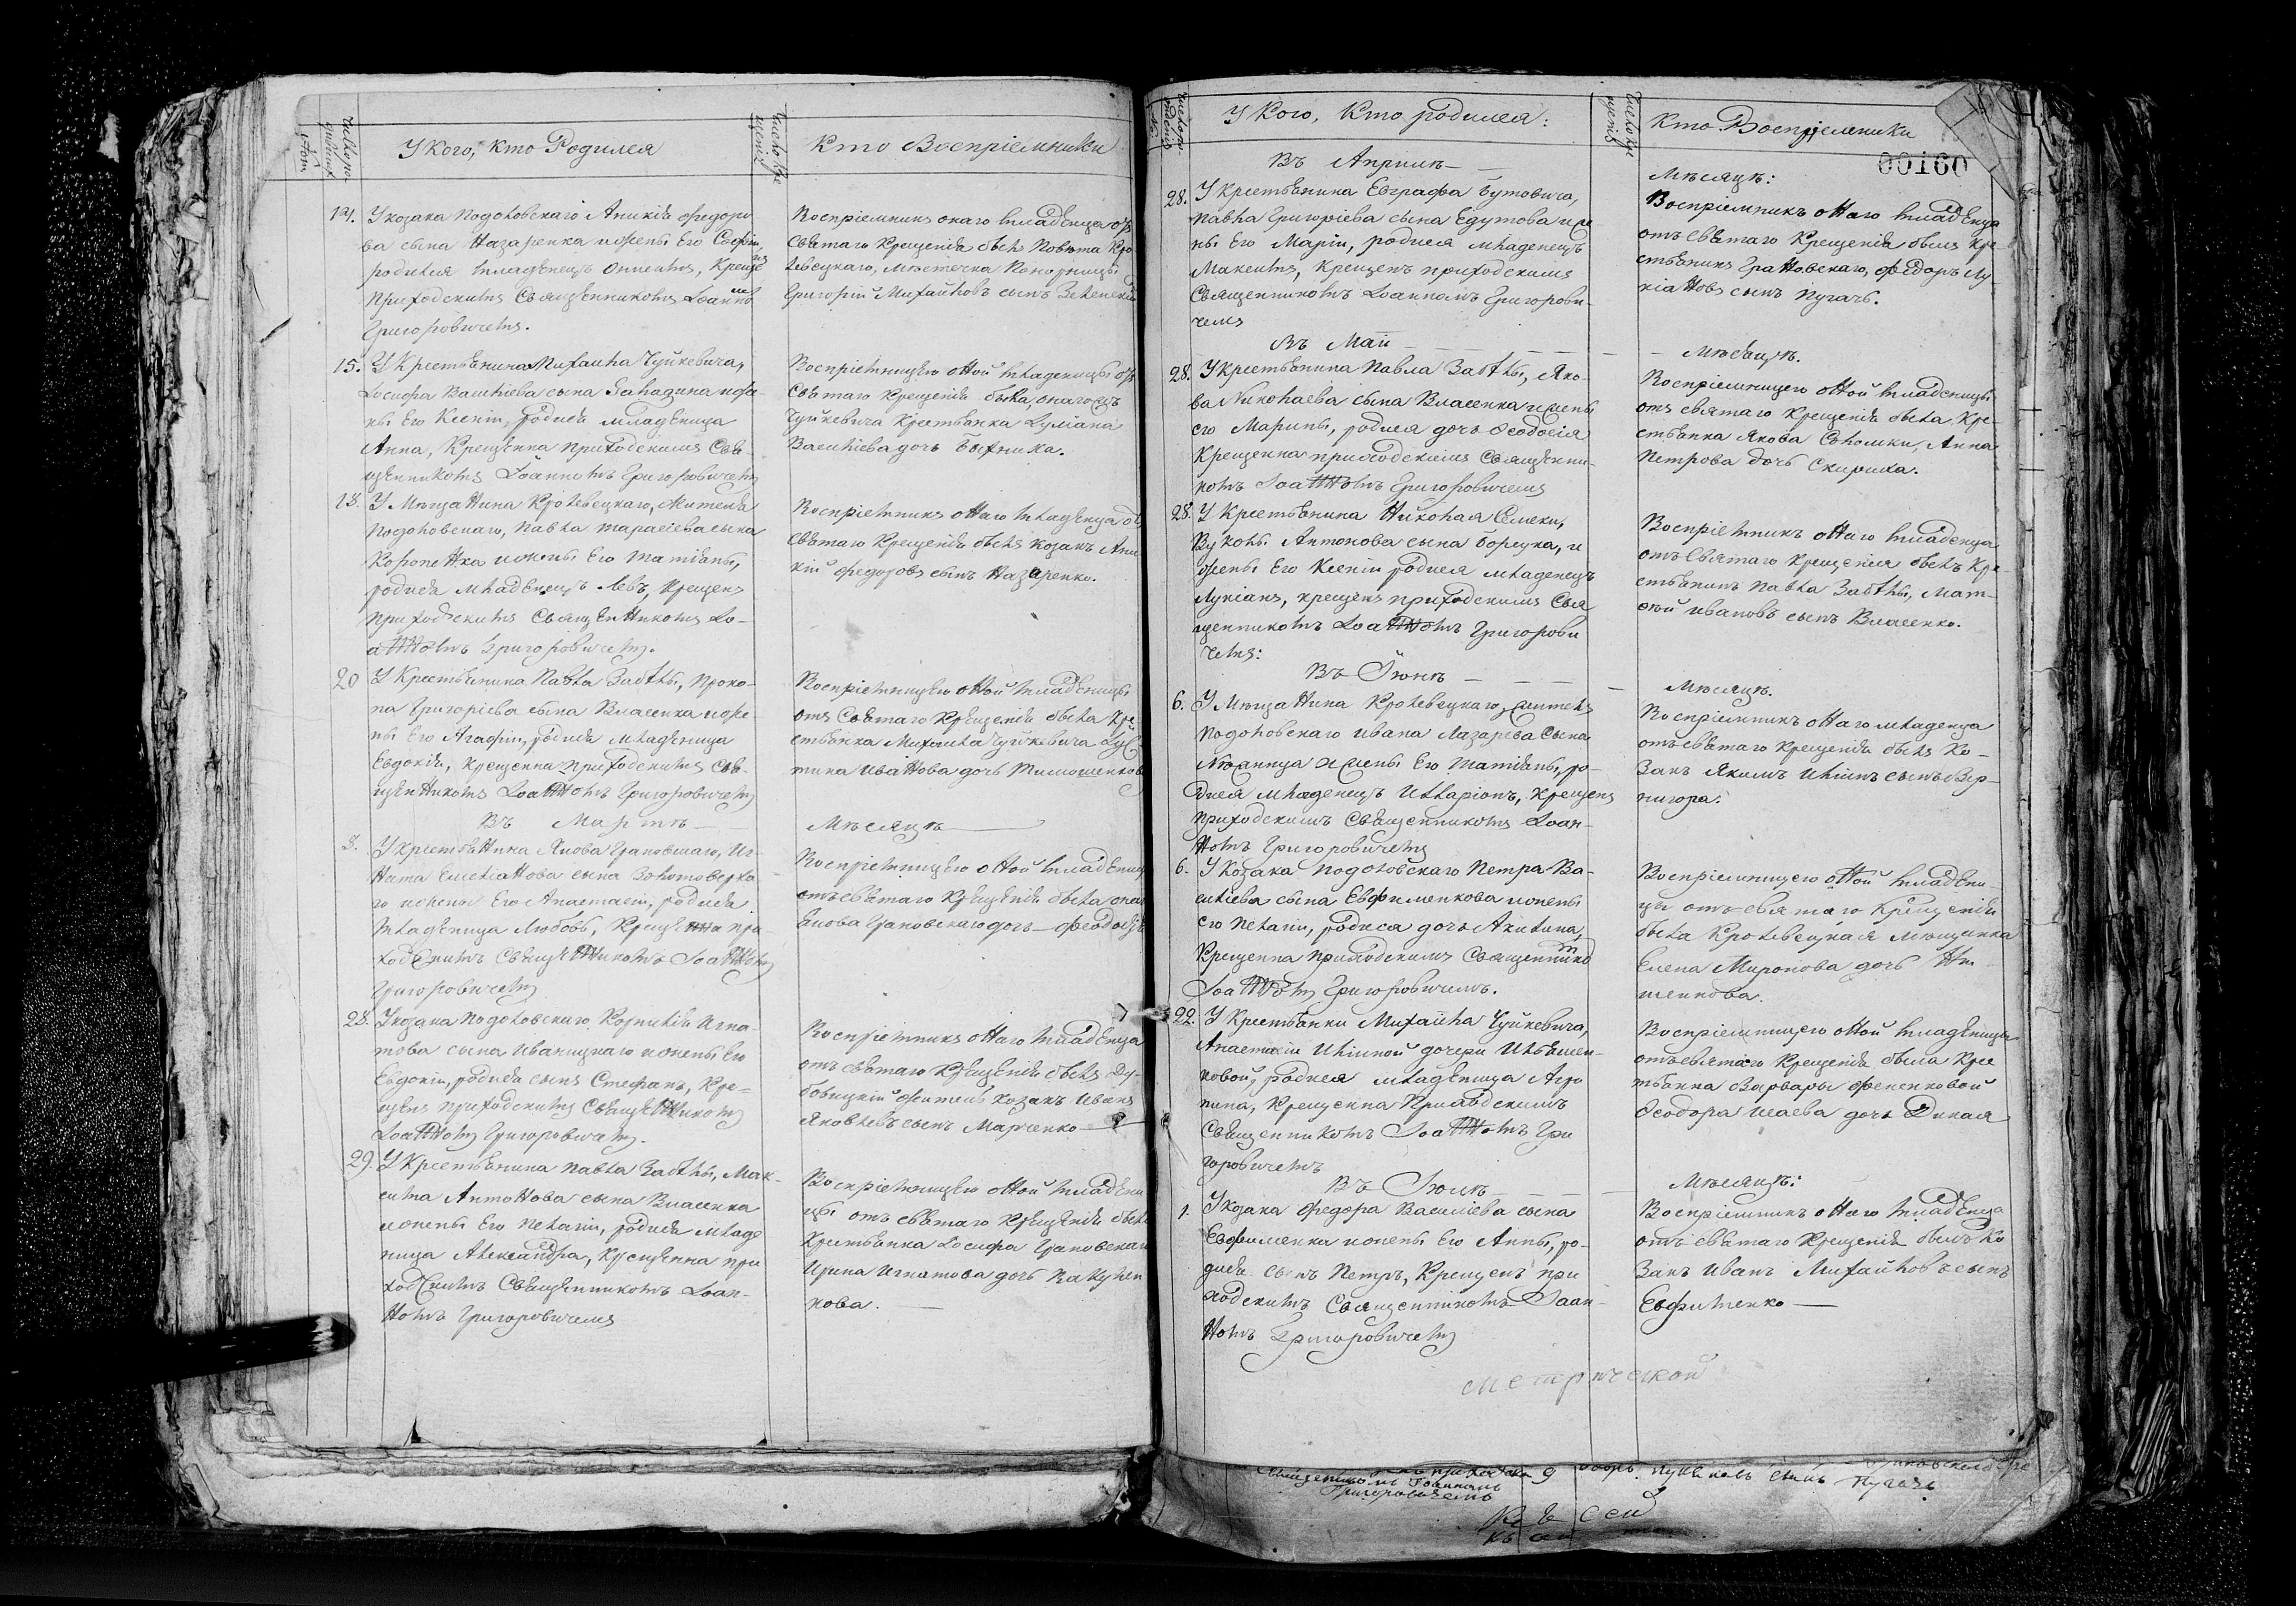 У Кого, Кто Родился
Кто Воспріемники
14. У козака Подоловскаго Аникія Федоро-
ва сына Назаренка и жены Его Софіи,
родился младенецъ Крещенъ
приходскимъ Священникомъ Іоанномъ
Григоровичемъ.
Воспріемникъ онаго младенца отъ
Святаго Крещенія былъ Повѣта Кро
левецкаго, мѣстечка Понорницы
Григорій Михайловъ сынъ Зеленскій
15. У Крестьянина Михаила Чуйкевича,
Іосифа Василіева сына и же-
ны Его Ксеніи, родися младѣница
Анна, Крещенна приходскимъ Свя-
щенникомъ Іоанномъ Григоровичемъ
Воспріемницею онной младеницы отъ
Святаго Крещенія была, онагожъ
Чуйкевича Крестьянка Іуліана
Василіева дочь
18. У Мѣщанина Кролевецкаго, Жителя
Подоловскаго, Павла Тарасіева сына
и жены Его Татіаны,
родися младенецъ Левъ, Крещенъ
приходскимъ Священникомъ Іо-
анномъ Григоровичемъ.
Воспріемникъ оннаго младенца отъ
Святаго Крещенія былъ Козакъ Ани
кій Федоровъ сынъ Назаренко.
20 У Крестьянина Павла Забѣлы, Проко-
па Григоріева сына Власенка и же-
ны Его Агафіи, родися младѣница
Евдокія, крещенна приходскимъ Свя-
щенникомъ Іоанномъ Григоровичемъ
Воспріемницею онной младеницы
отъ Святаго Крещенія была Кре
стьянка Михаила Чуйкевича Іус
тина Иванова дочь Тимошенкова
Въ Мартѣ
Мѣсяцѣ
3. У крестьянина Якова Грановскаго, Иг-
ната Емеліанова сына Золотоверха
го и жены Его Анастасіи, родися
младѣница Любовь, Крещенна при
ходскимъ Священникомъ Іоанномъ
Григоровичемъ
Воспріемницею онной младениц
отъ святаго Крещенія была
Якова Грановскаго дочь Феодосія
28. У козака Подоловскаго Корнилія Игна-
това сына Иваницкаго и жены Его
Евдокіи, родися сынъ Стефанъ, Кре-
щенъ приходскимъ Священникомъ
Іоанномъ Григоровичемъ.
Воспріемникъ оннаго младенца
отъ святаго Крещенія былъ Ду-
бовицкій житель козакъ Иванъ
Яковлевъ сынъ Марченко
29. У Крестьянина Павла Забѣлы, Мак-
сима Антонова сына Власенка
и жены Его Пелагіи, родися младе
ница Александра, крещенна при
ходскимъ Священникомъ Іоан-
номъ Григоровичемъ
Воспріемницею онной младени
цы отъ святаго Крещенія была
Крестьянка Іосифа Грановскаго
Ирина Игнатова дочь
кова.
У Кого, Кто родился:
Кто Воспріемники
00160
Въ Априлѣ
Мѣсяцѣ:
28. У крестьянина Евграфа Бутовича,
Павла Григоріева сына и же-
ны Его Маріи, родися младенецъ
Максимъ, крещенъ приходскимъ
Священникомъ Іоанномъ Григорови-
чемъ
Воспріемникъ оннаго младенца
отъ Святаго Крещенія былъ кре-
стьянинъ Грановскаго, Федоръ Лу
кіановъ сынъ Пугачъ.
Въ Маіи
Мѣсяцѣ.
28. У крестьянина Павла Забѣлы, Яко-
ва Николаева сына Власенка и жены
его Марины, родися дочь Феодосія
Крещенна приходскимъ Священни-
комъ Іоанномъ Григоровичемъ
Воспріемницею онной младеницы
отъ святаго Крещенія была, Кре-
стьянка Якова Соломки, Анна
Петрова дочь Скириха.
28. У Крестьянина Николая Семеки,
Вуколы Антонова сына Борецка, и
жены Его Ксеніи родися младенецъ
Лукіанъ, крещенъ приходскимъ Свя
щенникомъ Іоанномъ Григорови
чемъ:
Воспріемникъ оннаго младенца
отъ Святаго Крещенія былъ Кре
стьянинъ Павла Забѣлы, Мат-
ѳей Ивановъ сынъ Власенко.
Въ Іюнѣ
Мѣсяцѣ.
6. У Мѣщанина Кролевецкаго, жителя
Подоловскаго Ивана Лазарева Сына
жены Его Татіаны, ро-
дися младенецъ Илларіонъ, Крещенъ
приходскимъ Священникомъ Іоан-
номъ Григоровичемъ
Воспріемникъ оннаго младенца
отъ святаго Крещенія былъ Ко-
закъ Якимъ Иліинъ сынъ Вер-
нигора.
6. У Козака Подоловскаго Петра Ва-
силіева сына Евфименкова и жены
его Пелагіи, родися дочь Акилина,
Крещенна приходскимъ Священнико
Іоанномъ Григоровичемъ.
Воспріемницею онной младени-
цы отъ святаго Крещенія
была Кролевецкая мѣщанка
Елена Миронова дочь
шенкова.
22. У Крестьянки Михаила Чуйкевича,
Анастасіи Иліиной дочери Ильяшен-
ковой, родися младѣница Агри
пина, Крещенна Приходскимъ
Священникомъ Іоанномъ Гри
горовичемъ
Воспріемницею онной младѣницы
отъ святаго Крещенія была Крес
тьянка Варвары Фененковой
Феодора Исаева дочь Дикая
Въ Іюлѣ
Мѣсяцѣ:
1. У козака Федора Василіева сына
Евфименка и жены Его Анны, ро-
дися сынъ Петръ, Крещенъ при
ходскимъ Священникомъ Іоан-
номъ Григоровичемъ
Воспріемникъ оннаго младенца
отъ святаго Крещенія былъ Ко
закъ Иванъ Михайловъ сынъ
Евфименко
Метрической
Григоровичемъ
сынъ Пугачъ
Къ сей